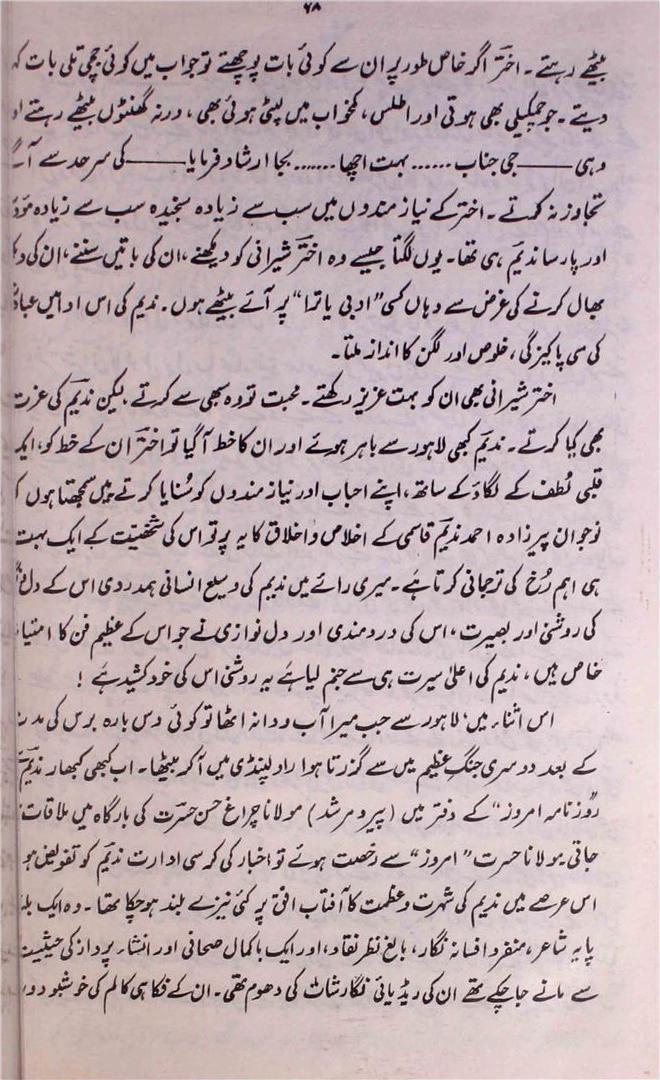 ۶۸
بیٹھے رہتے۔ اخترؔ اگر خاص طور پر ان سے کوئی بات پوچھتے تو جواب میں کوئی جچی تلی بات کہ
دیتے۔ جو چمکیلی بھی ہوتی اور اطلس، کمخواب میں لپٹی ہوئی بھی، ورنہ گھنٹوں بیٹھے رہتے او
وہی ——— جی جناب ...... بہت اچھا ...... بجا ارشاد فرمایا ——— کی سرحد سے آگے
تجاوز نہ کرتے۔ اختر کے نیاز مندوں میں سب سے زیادہ سنجیدہ سب سے زیادہ مؤد
اور پارسا ندیمؔ ہی تھا۔ یوں لگتا جیسے وہ اخترؔ شیرانی کو دیکھنے، ان کی باتیں سننے، ان کی دی
بھال کرنے کی غرض سے وہاں کسی "ادبی یاترا" پر آئے بیٹھے ہوں۔ ندیم کی اس ادا میں عباد
کی سی پاکیزگی، خلوص اور لگن کا انداز ملتا۔
اختر شیرانی بھی ان کو بہت عزیز رکھتے۔ محبت تو وہ سبھی سے کرتے لیکن ندیمؔ کی عزت
بھی کیا کرتے۔ ندیمؔ کبھی لاہور سے باہر ہوتے اور ان کا خط آ گیا تو اخترؔ ان کے خط کو، ایک
قلبی لُطف کے لگاؤ کے ساتھ، اپنے احباب اور نیاز مندوں کو سُنایا کرتے میں سمجھتا ہوں
نوجوان پیرزادہ احمد ندیمؔ قاسمی کے اخلاص و اخلاق کا یہ پرتو اس کی شخصیت کے ایک بہت
ہی اہم رُخ کی ترجمانی کرتا ہے۔ میری رائے میں ندیم کی وسیع انسانی ہمدردی اس کے دل
کی روشنی اور بصیرت، اس کی دردمندی اور دل نوازی نے جو اس کے عظیم فن کا امتیاز
خاص ہیں، ندیم کی اعلیٰ سیرت ہی سے جنم لیا ہے یہ روشنی اس کی خود کشید ہے!
اس اثناء میں لاہور سے جب میرا آب و دانہ اٹھا تو کوئی دس بارہ برس کی مدت
کے بعد دوسری جنگِ عظیم میں سے گزرتا ہوا راولپنڈی میں آ کر بیٹھا۔ اب کبھی کبھار ندیمؔ
"روزنامہ امروز" کے دفتر میں (پیر و مرشد) مولانا چراغ حسن حسرت کی بارگاہ میں ملاقات
جاتی۔ مولانا حسرت "امروز" سے رخصت ہوئے تو اخبار کی کرسی ادارت ندیمؔ کو تفویض ہو
اس عرصے میں ندیم کی شہرت و عظمت کا آفتاب افق پر کئی نیزے بلند ہو چکا تھا۔ وہ ایک بلن
پایہ شاعر، منفرد افسانہ نگار، بالغ نظر نقاد، اور ایک باکمال صحافی اور انشاء پرداز کی حیثیت
سے مانے جا چکے تھے ان کی ریڈیائی نگارشات کی دھوم تھی۔ ان کے فکاہی کالم کی خوشبو دور